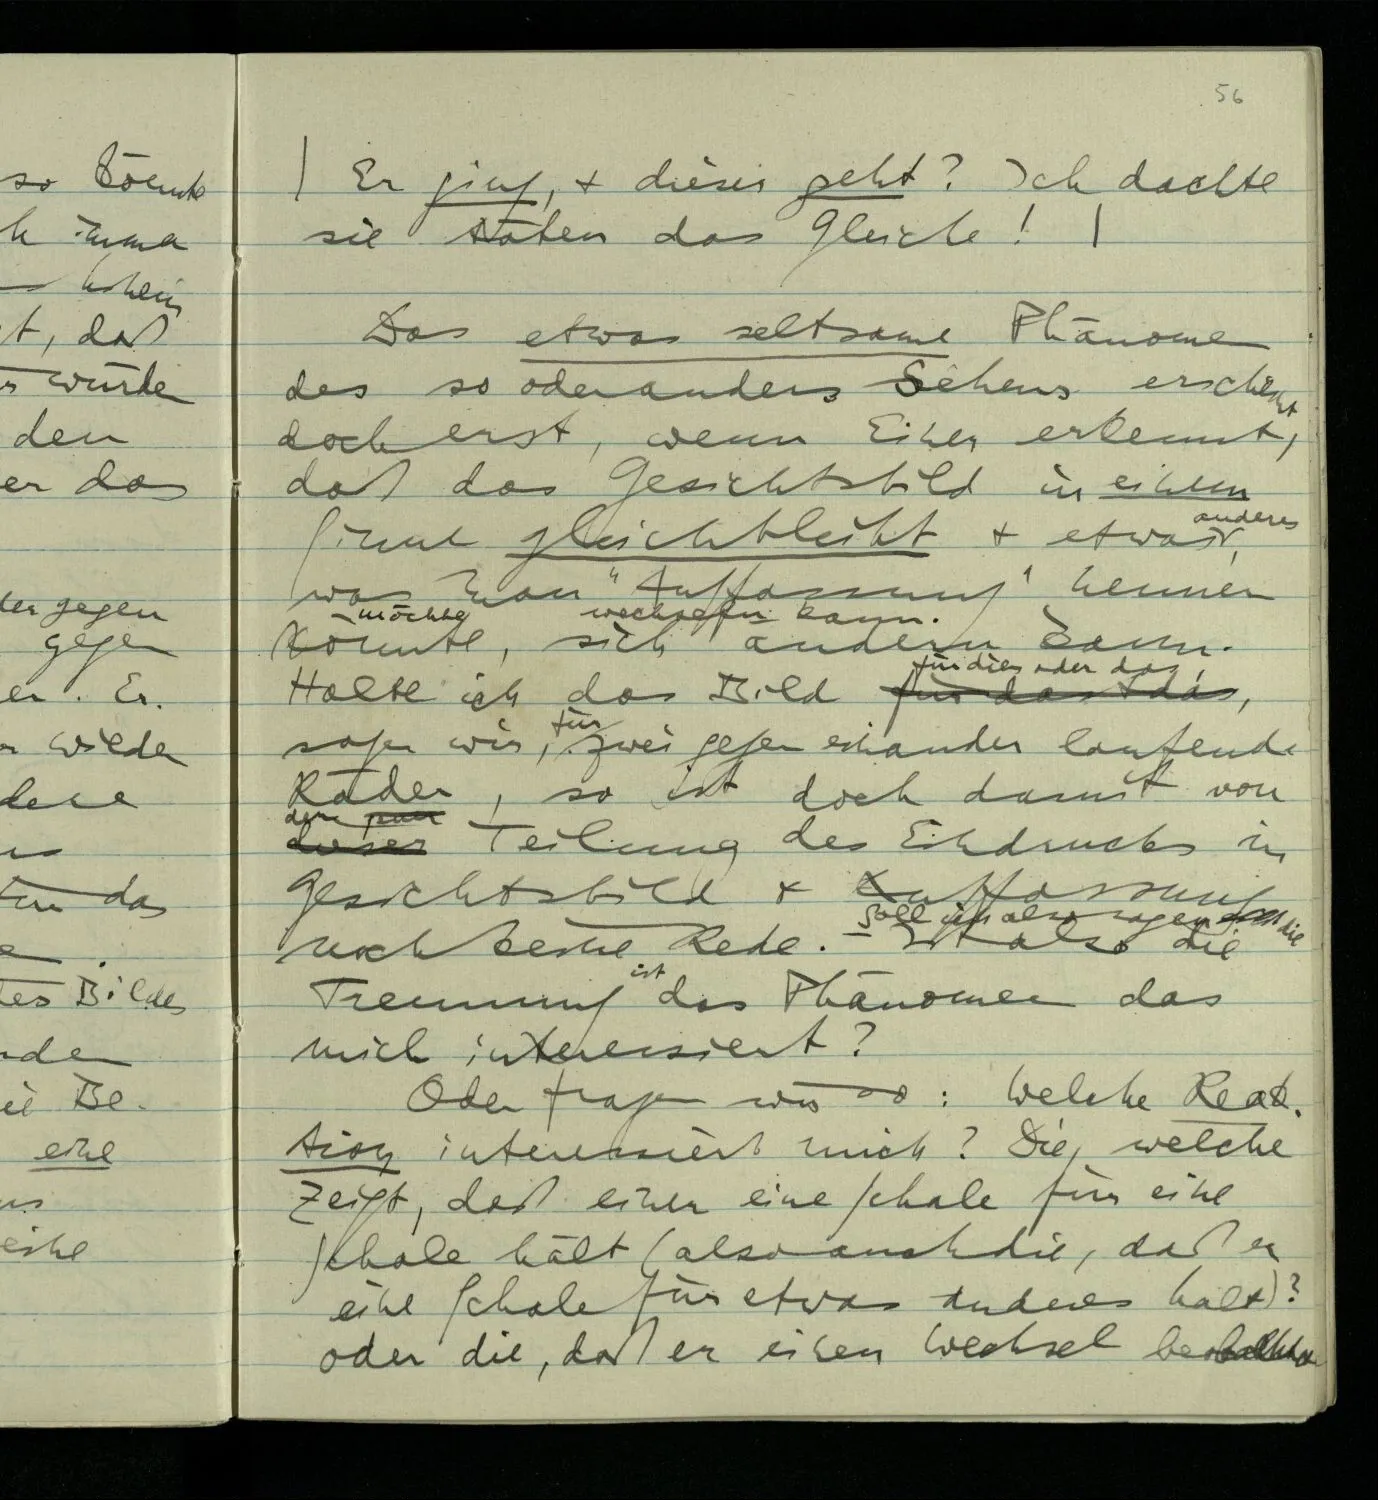 56
so könnte
immer
, daß
würde
den
er das
gegen
gegen
er. Er
wilde
das
tes Bildes
die Be-
eine
eine
| Er ging, + dieser geht? Ich dachte
sie täten das Gleiche! |
Das etwas seltsame Phänomen
des so oder anders Sehens erscheint
doch erst, wenn Einer erkennt,
daß das Gesichtsbild in einem
anderes
Sinne gleichbleibt + etwas,
was man "Auffassung" nennen
möchte wechseln kann.
könnte, sich ändern kann.
für dies oder das,
Halte ich das Bild für das + das,
für
sagen wir, zwei gegen einander laufende
Räder, so ist doch damit von
der
dieser Teilung des Eindrucks in
Gesichtsbild + Auffassung
Soll ich also sagen die
noch keine Rede. – Ist also die
ist
Trennung das Phänomen das
mich interessiert?
Oder fragen wir so: Welche Reak-
tion interessiert mich? Die, welche
zeigt, daß einer eine Schale für eine
Schale hält (also auch die, daß er
eine Schale für etwas anderes hält)?
oder die, daß er einen Wechsel beobachtet